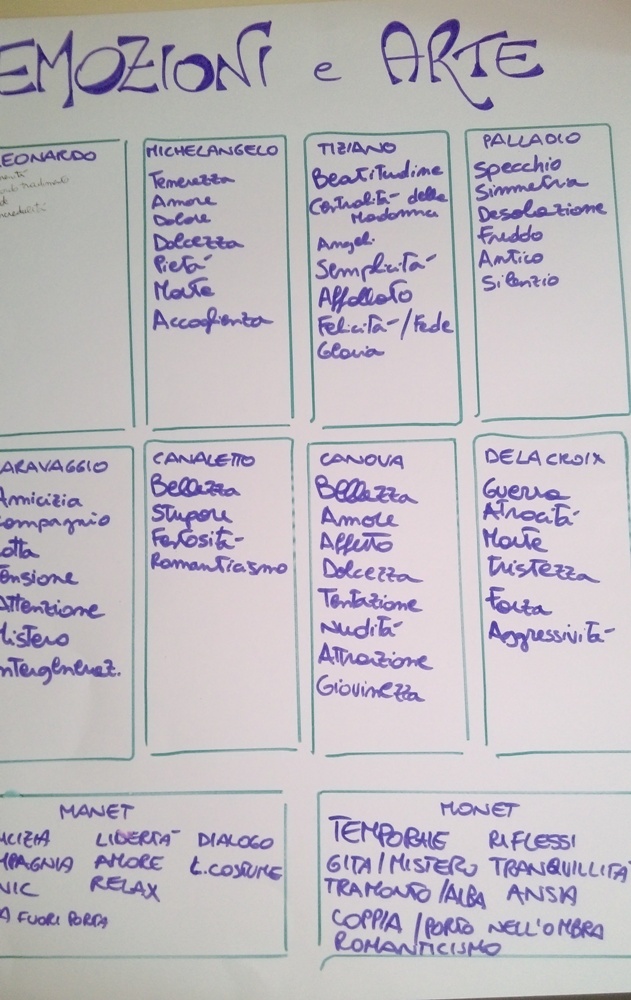 EMOZIONI e ARTE
EONARDO
MICHELANGELO
Tenerezza
Amore
Dolore
Dolcezza
Pietà
Morte
Accoglienza
TIZIANO
Beatitudine
Centralità della
Madonna
Angeli
Semplicità
Affollato
Felicità/Fede
Gloria
PALLADIO
Specchio
Simmetria
Desolazione
Freddo
Antico
Silenzio
ARAVAGGIO
Amicizia
ompagnio
otta
Tensione
Attenzione
Mistero
ntergenerat.
CANALETTO
Bellezza
Stupore
Festosità
Romanticismo
CANOVA
Bellezza
Amore
Affetto
Dolcezza
Tentazione
Nudità
Attrazione
Giovinezza
DELACROIX
Guerra
Atrocità
Morte
Tristezza
Forza
Aggressività
MANET
ICIZIA LIBERTÀ DIALOGO
MPAGNIA AMORE L.COSTUME
NIC RELAX
A FUORI PORTA
MONET
TEMPORALE RIFLESSI
GITA/MISTERO TRANQUILLITÀ
TRAMONTO/ALBA ANSIA
COPPIA/PORTO NELL'OMBRA
ROMANTICISMO